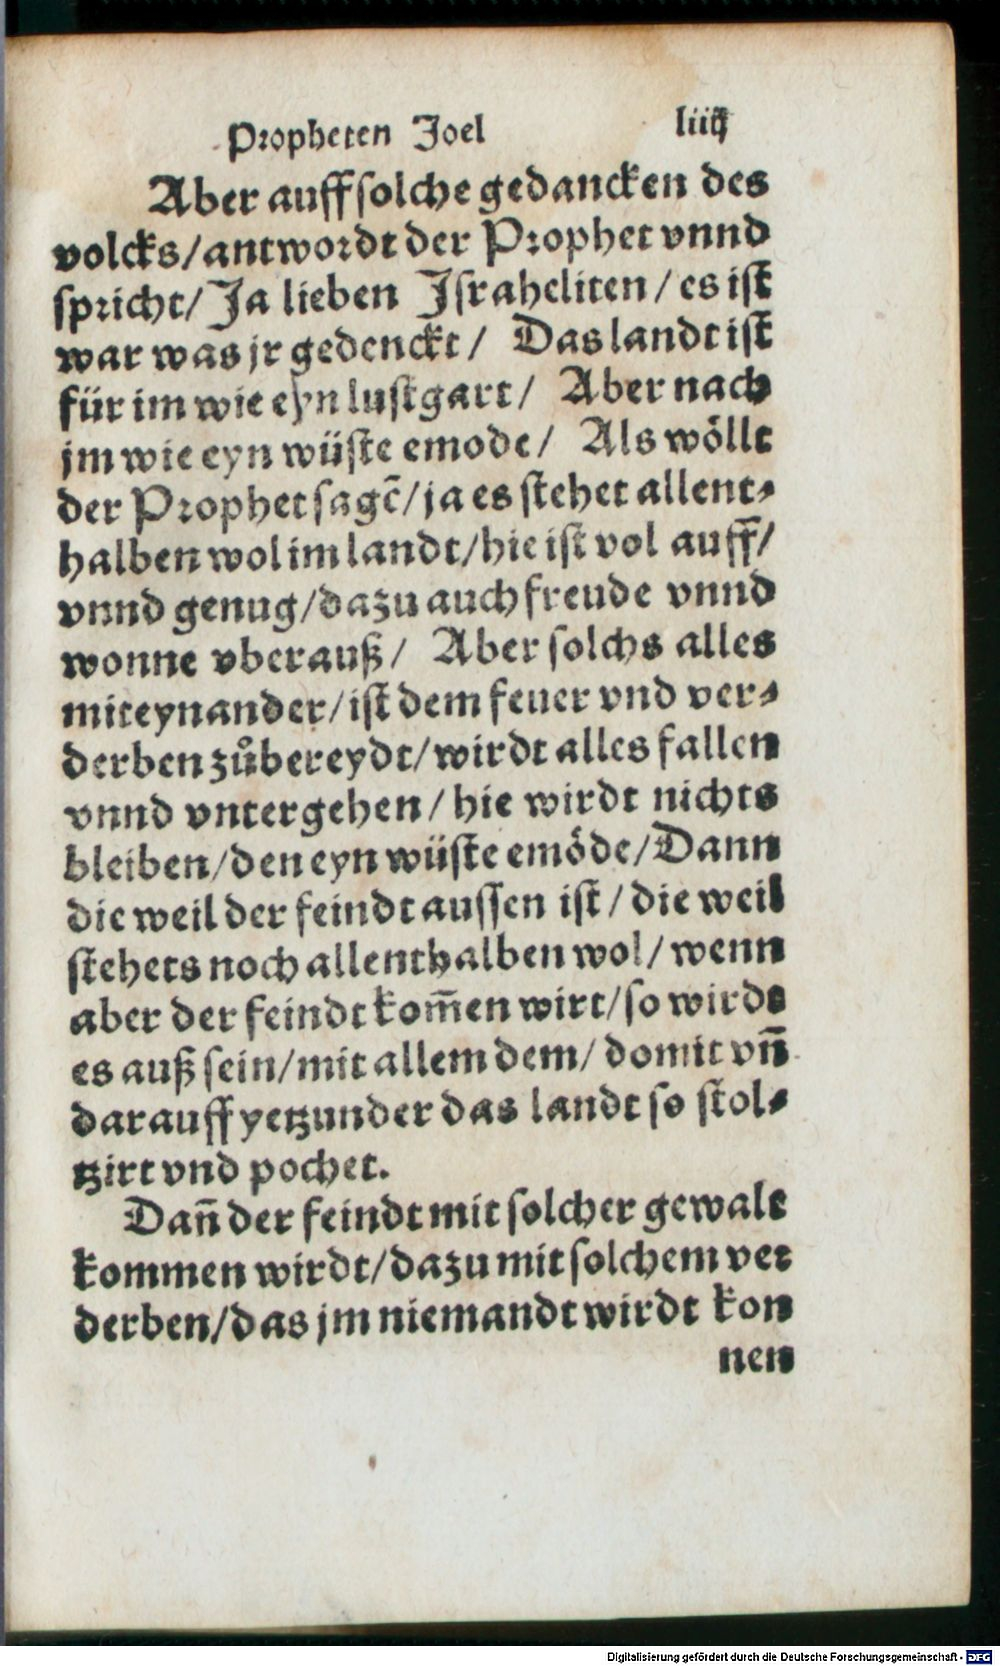 Propheten Joel liiij
Aber auff solche gedancken des
volcks/antwordt der Prophet vnnd
spricht/ Ja lieben Israheliten/ es ist
war was jr gedenckt/ Das landt ist
für im wie eyn lustgart/ Aber nach
jm wie eyn wüste emode/ Als wöllt
der Prophet sagē/ja es stehet allent-
halben wol im landt/hie ist vol auff/
vnnd genug/dazu auch freude vnnd
wonne vberauß/ Aber solchs alles
miteynander/ist dem feuer vnd ver-
derben zůbereydt/wirdt alles fallen
vnnd vntergehen/hie wirdt nichts
bleiben/den eyn wüste emöde/Dann
die weil der feindt aussen ist/die weil
stehets noch allenthalben wol/wenn
aber der feindt kom̄en wirt/so wirdt
es auß sein/mit allem dem/domit vn̄
darauff yetzunder das landt so stol-
tzirt vnd pochet.
Dan̄ der feindt mit solcher gewalt
kommen wirdt/dazu mit solchem ver
derben/das jm niemandt wirdt kon
nen
Digitalisierung gefördert durch die Deutsche Forschungsgemeinschaft - DFG